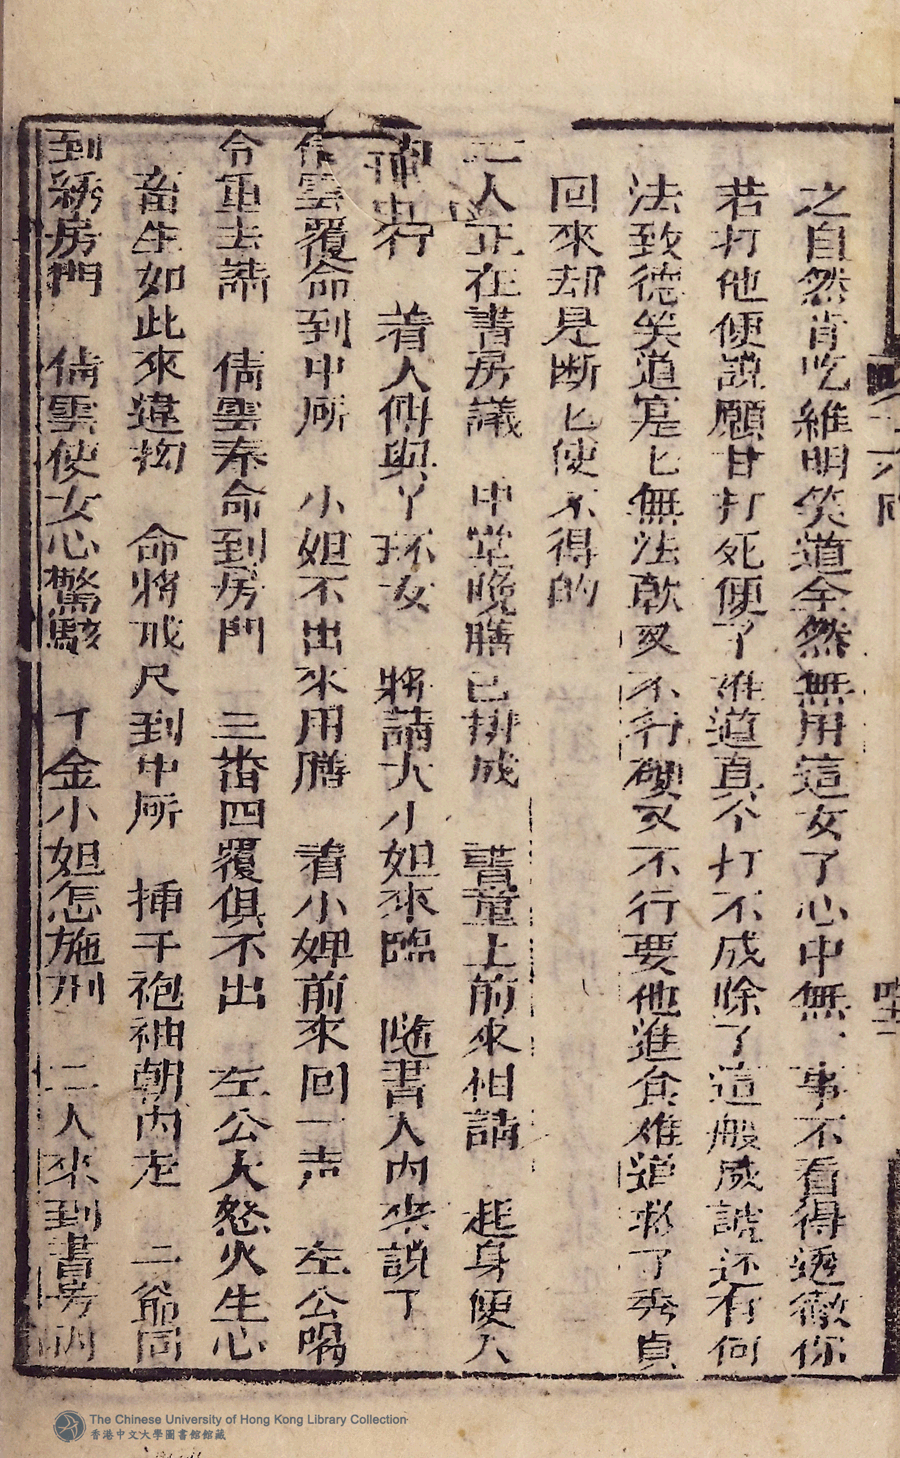 之自然肯吃維明笑道全然無用這女了心中無一事不看得透徹你
若打他便說願甘打死便了难道真个打不成除了這般威諕还有何
法致德笑道寔匕無法軟又不行硬又不行要他進食难道救了秀貞
回來却是断匕使不得的
二人正在書房議 中堂晚膳已排成 書童上前來相請 起身便入
中行 着人傳與丫环女 將請大小姐來臨 隨書人內來說了
倩雲覆命到中所 小姐不出來用膳 着小婢前來回一声 左公喝
令重去請 倩雲奉命到房門 三番四覆俱不出 左公大怒火生心
畜生如此來違拗 命將戒尺到中所 挿于袍袖朝內走 二爺同
到綉房門 倩雲使女心驚駭 千金小姐怎施刑 二人來到書房內
六囬
The Chinese University of Hong Kong Library Collection
香港中文大學圖書館館藏